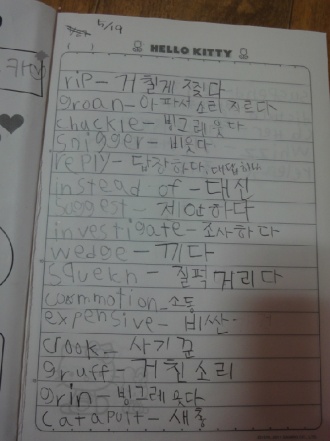 5/19
HELLO KITTY
rip - 거칠게 찢다
groan - 아파서 소리 지르다
chuckle - 빙그레 웃다
snigger - 비웃다
reply - 답장하다, 대답하다
instead of - 대신
suggest - 제안하다
investigate - 조사하다
wedge - 끼다
squelch - 질퍽거리다
commotion - 소동
expensive - 비싼
crook - 사기꾼
gruff - 거친 소리
grin - 빙그레 웃다
catapult - 새총